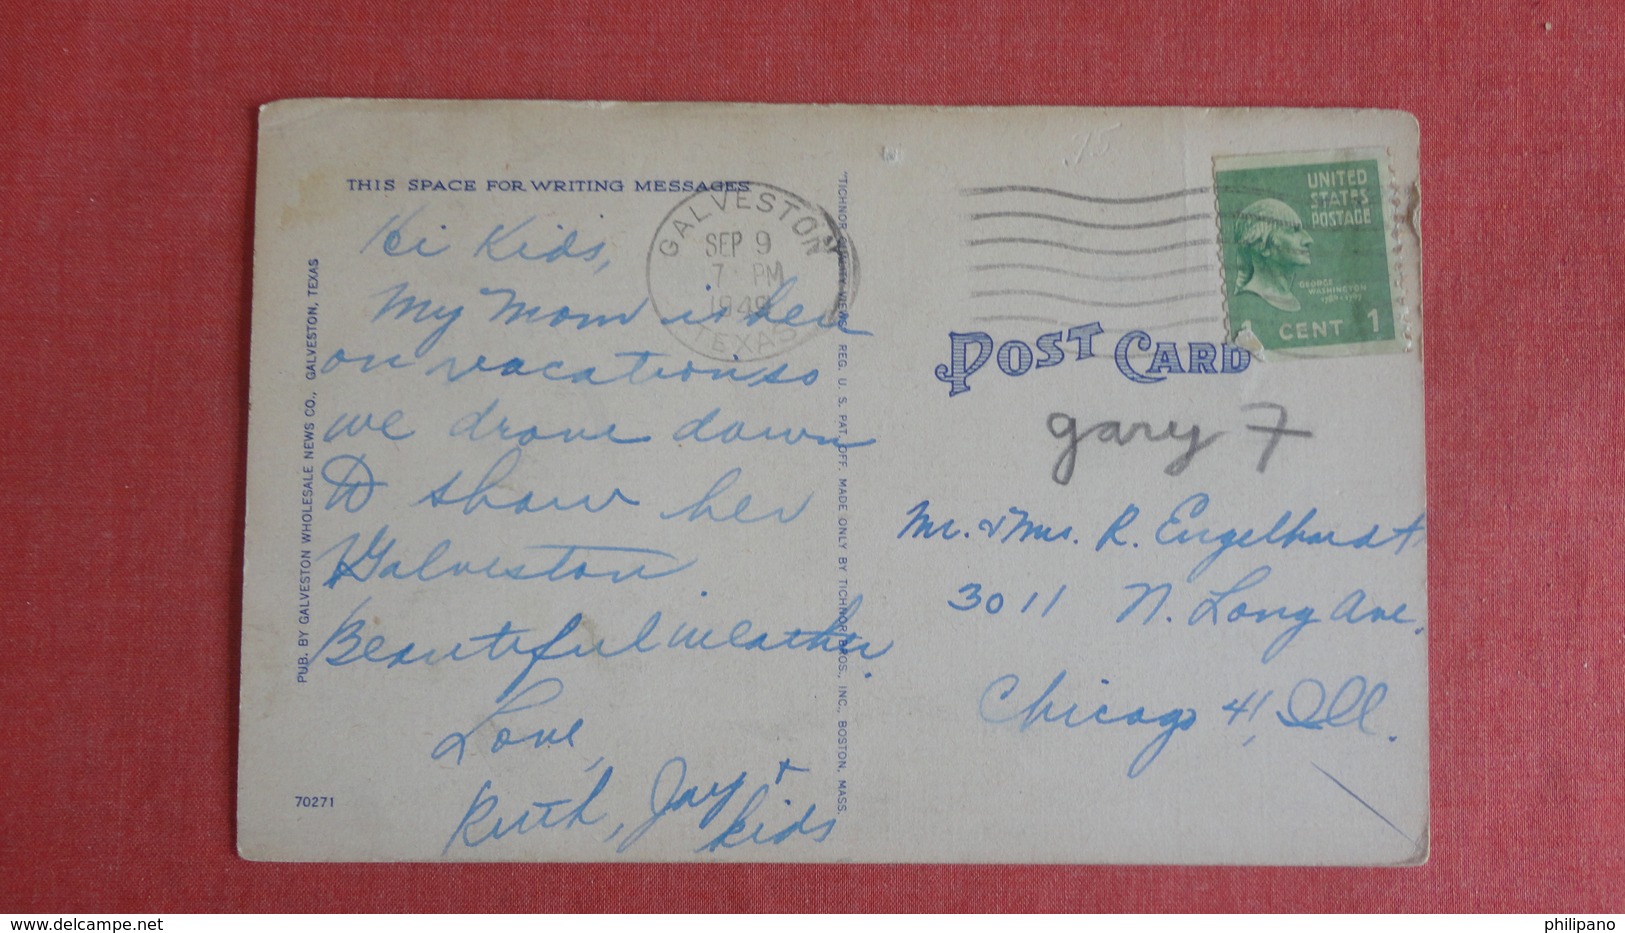 THIS SPACE FOR WRITING MESSAGES
Hi Kids,
My Mom is here
on vacation so
we drove down
to show her
Galveston
Beautiful weather.
Love,
Ruth, Jay +
kids
GALVESTON
SEP 9
7 PM
1949
TEXAS
PUB. BY GALVESTON WHOLESALE NEWS CO., GALVESTON, TEXAS
70271
"TICHNOR QUALITY VIEWS" REG. U. S. PAT. OFF. MADE ONLY BY TICHNOR BROS., INC., BOSTON, MASS.
.75
UNITED
STATES
POSTAGE
GEORGE
WASHINGTON
1789-1797
1 CENT 1
POST CARD
gary 7
Mr. & Mrs. R. Engelhardt
3011 N. Long Ave.
Chicago 41, Ill.
philipano